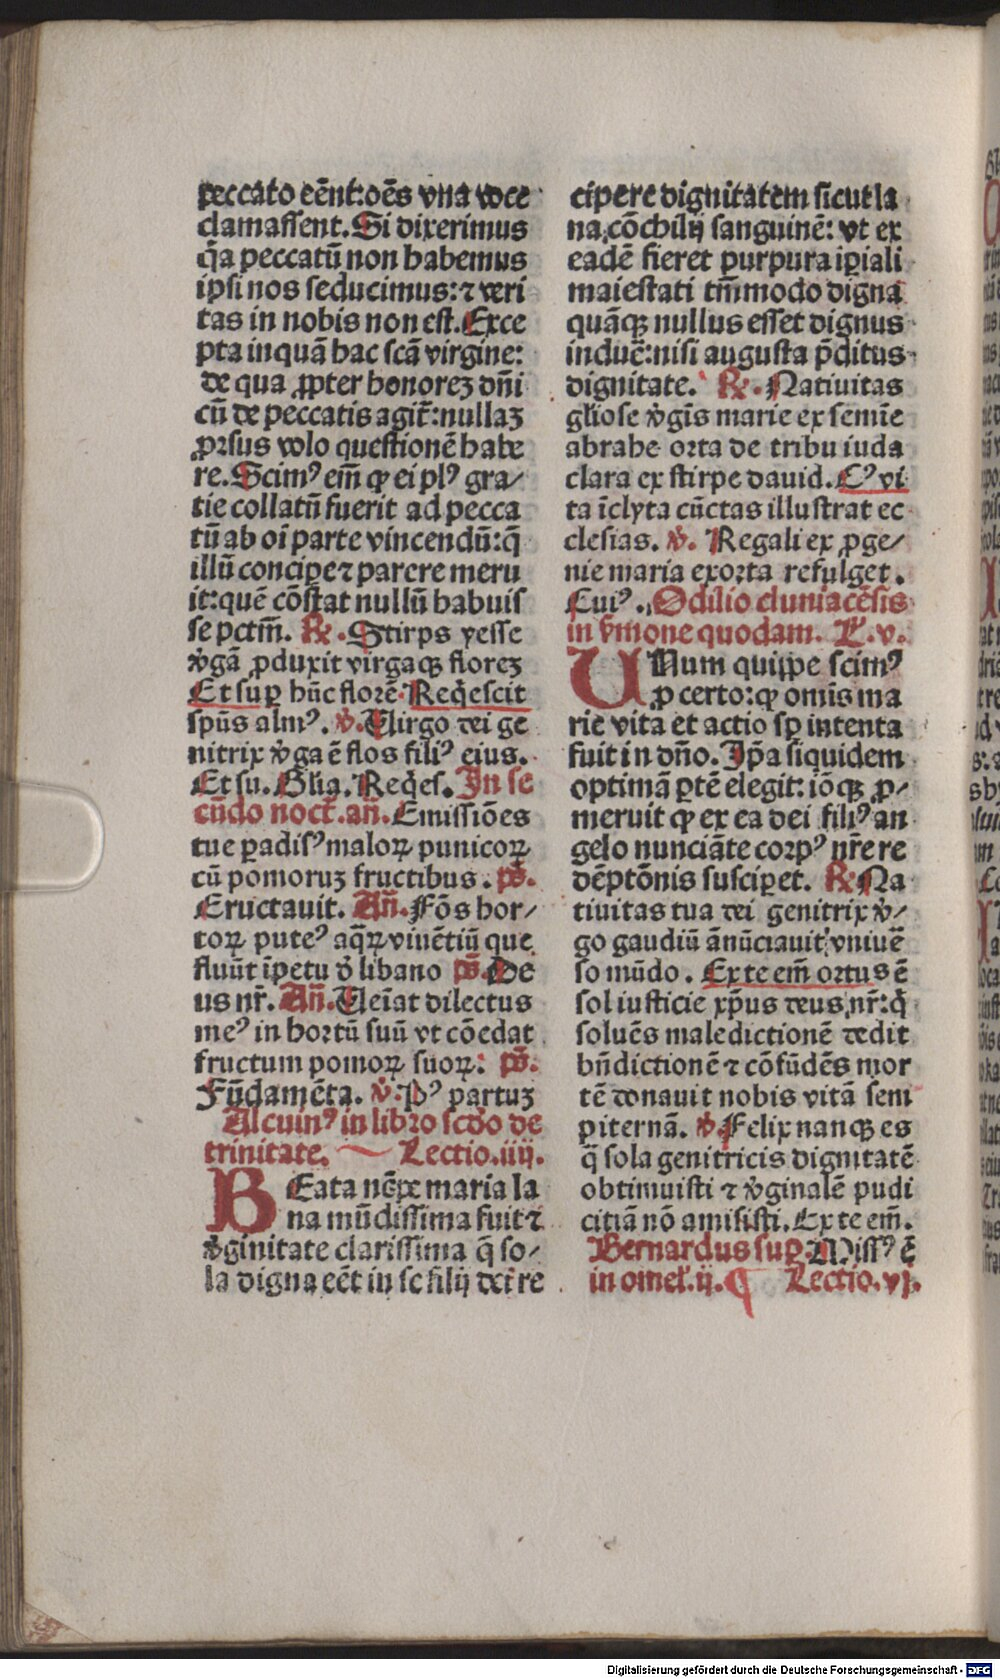 peccato eēnt: oēs vna voce
clamassent. Si dixerimus
q̄a peccatū non habemus
ipsi nos seducimus: ⁊ veri
tas in nobis non est. Exce
pta inquā hac scā virgine:
de qua ꝓpter honoreʒ dn̄i
cū de peccatis agit᷑: nullaʒ
ꝓrsus volo questionē habe
re. Scimꝰ em̄ ꝙ ei plꝰ gra/
tie collatū fuerit ad pecca
tū ab oī parte vincendū: q̄
illū concipe ⁊ parere meru
it: quē cōstat nullū habuis
se pctm̄. ℟. Stirps yesse
v̓gā ꝓduxit virgaqꝫ floreʒ
Et suꝑ hūc florē Req̇escit
spūs almꝰ. ℣. Uirgo dei ge
nitrix v̓ga ē flos filiꝰ eius.
Et su. Glia. Req̇es. In se
cūdo noct̄. an̄. Emissiōes
tue ꝑadisꝰ maloꝝ punicoꝝ
cū pomoruʒ fructibus. ps̄.
Eructauit. An̄. Fōs hor/
toꝝ puteꝰ aq̄ꝝ viuētiū que
fluūt īpetu d̓ libano ps̄. De
us nr̄. An̄. Ueīat dilectus
meꝰ in hortū suū vt cōedat
fructum pomoꝝ suoꝝ: ps̄.
Fūdamēta. ℣. Pꝰ partuʒ
Alcuinꝰ in libro scd̄o de
trinitate. Lectio. iiij.
BEata nēpe maria la
na mūdissima fuit ⁊
v̓ginitate clarissima q̄ so/
la digna eēt in se filij dei re
cipere dignitatem sicut la
na cōchilij sanguinē: vt ex
eadē fieret purpura iꝑiali
maiestati tm̄modo digna
quāqꝫ nullus esset dignus
induē: nisi augusta p̄ditus
dignitate. ℟. Natiuitas
gl̄iose v̓gīs marie ex semīe
abrahe orta de tribu iuda
clara ex stirpe dauid. Cꝰ vi
ta īclyta cūctas illustrat ec
clesias. ℣. Regali ex ꝓge/
nie maria exorta refulget.
Cuiꝰ. Odilio cluniacēsis
in s̓mone quodam. L̓. v.
UNum quippe scimꝰ
ꝓ certo: ꝙ omīs ma
rie vita et actio sꝑ intenta
fuit in dn̄o. Ip̄a siquidem
optimā ꝑtē elegit: iōqꝫ ꝓ/
meruit ꝙ ex ea dei filiꝰ an
gelo nunciāte corpꝰ nr̄e re
dēptōnis susciꝑet. ℟. Na
tiuitas tua dei genitrix v̓/
go gaudiū ānūciauit vniuē
so mūdo. Ex te em̄ ortus ē
sol iusticie xp̄us deus nr̄: q̇
soluēs maledictionē dedit
bn̄dictionē ⁊ cōfūdēs mor
tē donauit nobis vitā sem
piternā. ℣. Felix nanqꝫ es
q̄ sola genitricis dignitatē
obtinuisti ⁊ v̓ginalē pudi
citiā nō amisisti. Ex te em̄.
Bernardus suꝑ Missꝰ ē
in omel̓. ij. ¶ Lectio. vj.
Digitalisierung gefördert durch die Deutsche Forschungsgemeinschaft - DFG